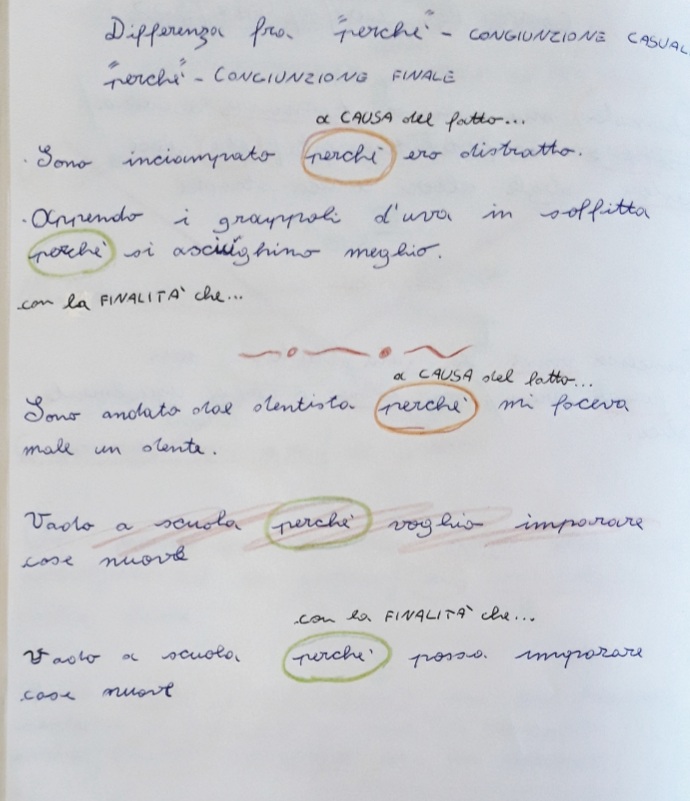 Differenza fra "perché" - CONGIUNZIONE CASUAL
"perché" - CONGIUNZIONE FINALE
a CAUSA del fatto...
· Sono inciampato perché ero distratto.
· Appendo i grappoli d'uva in soffitta
perché si asciughino meglio.
con la FINALITÀ che...
a CAUSA del fatto...
Sono andato dal dentista perché mi faceva
male un dente.
Vado a scuola perché voglio imparare
cose nuove
con la FINALITÀ che...
Vado a scuola perché possa imparare
cose nuove